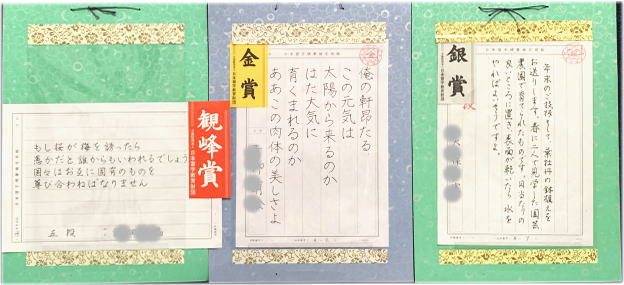 もし桜が梅を誘ったら
愚かだと誰からもいわれるでしょう
国々はお互に固有のものを
尊び合わねばなりません
五段
観峰賞
日本習字教育財団
金賞
日本習字教育財団
俺の軒昂たる
この元気は
太陽から来るのか
はた大気に
育くまれるのか
ああこの肉体の美しさよ
銀賞
日本習字教育財団
年末のご挨拶として、葉牡丹の鉢植えを
お送りします。春に二人で見学した園芸
農園で育てられたものです。日当たりの
良いところに置き、表面が乾いたら水を
やればよいそうですよ。